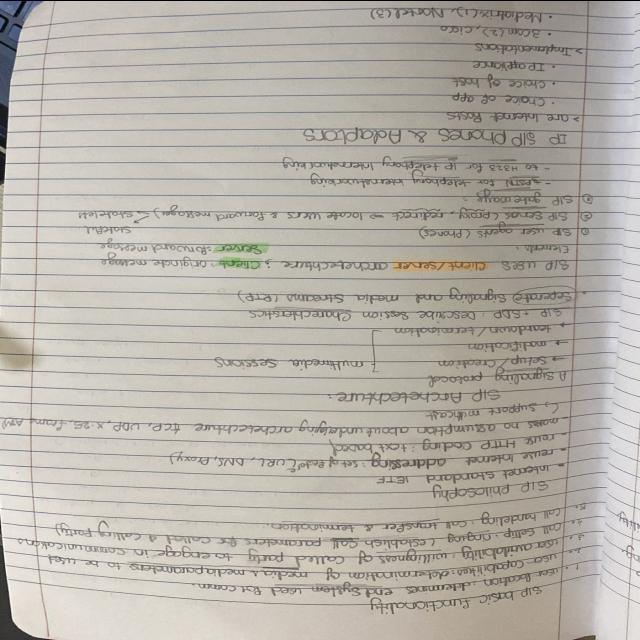 SIP basic Functionality
1. user location: determines end system used for comm.
2. user capabilities: determination of media & media parameters to be used
3. user availability: willigness of called party to engage in communications
4. call setup: ringing (establish call parameters for called & calling party)
5. call handeling: call transfer & termination.
SIP Philosophy
- internet standard IETF
- reuse Internet addressing (URL, DNS, Proxy)
- reuse HTTP coding: text based
- makes no assumption about underlying archetechture TCP, UDP, X.25, frame, ATM
↳ support multicast
SIP Archetechture:
A signaling protocol
→ setup / creation
→ modification multimedia sessions
→ teardown / termination
SIP + SDP: Describe Session Charecteristics
• Seperate Signaling and media Streams (RTP)
SIP uses client/server archetechture: client: originate message
Elements: Server:
① SIP user agents (phones)
② SIP Server (Proxy, redirect) ⇒ locate users & forward messages) stateful stateless
③ SIP gateways:
- PSTN for telephony internetworking
- to H323 for IP telephony Internetworking
IP SIP Phones & Adaptors
> are Internet Hosts
• Choice of app
• Choice of host
• IP appliance
> Implementations
• 3com (2), cisco
• Mediatrix (1), Nortel (3)